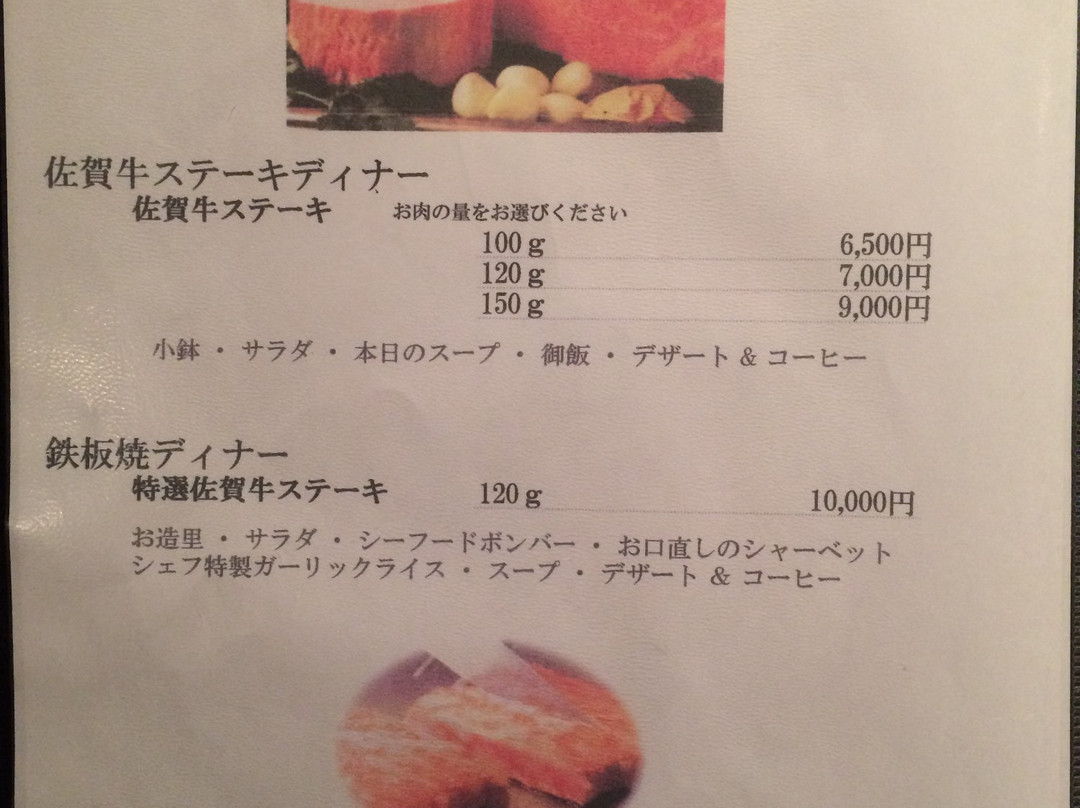 佐賀牛ステーキディナー
佐賀牛ステーキ お肉の量をお選びください
100ｇ 6,500円
120ｇ 7,000円
150ｇ 9,000円
小鉢 ・ サラダ ・ 本日のスープ ・ 御飯 ・ デザート ＆ コーヒー
鉄板焼ディナー
特選佐賀牛ステーキ 120ｇ 10,000円
お造里 ・ サラダ ・ シーフードボンバー ・ お口直しのシャーベット
シェフ特製ガーリックライス ・ スープ ・ デザート ＆ コーヒー